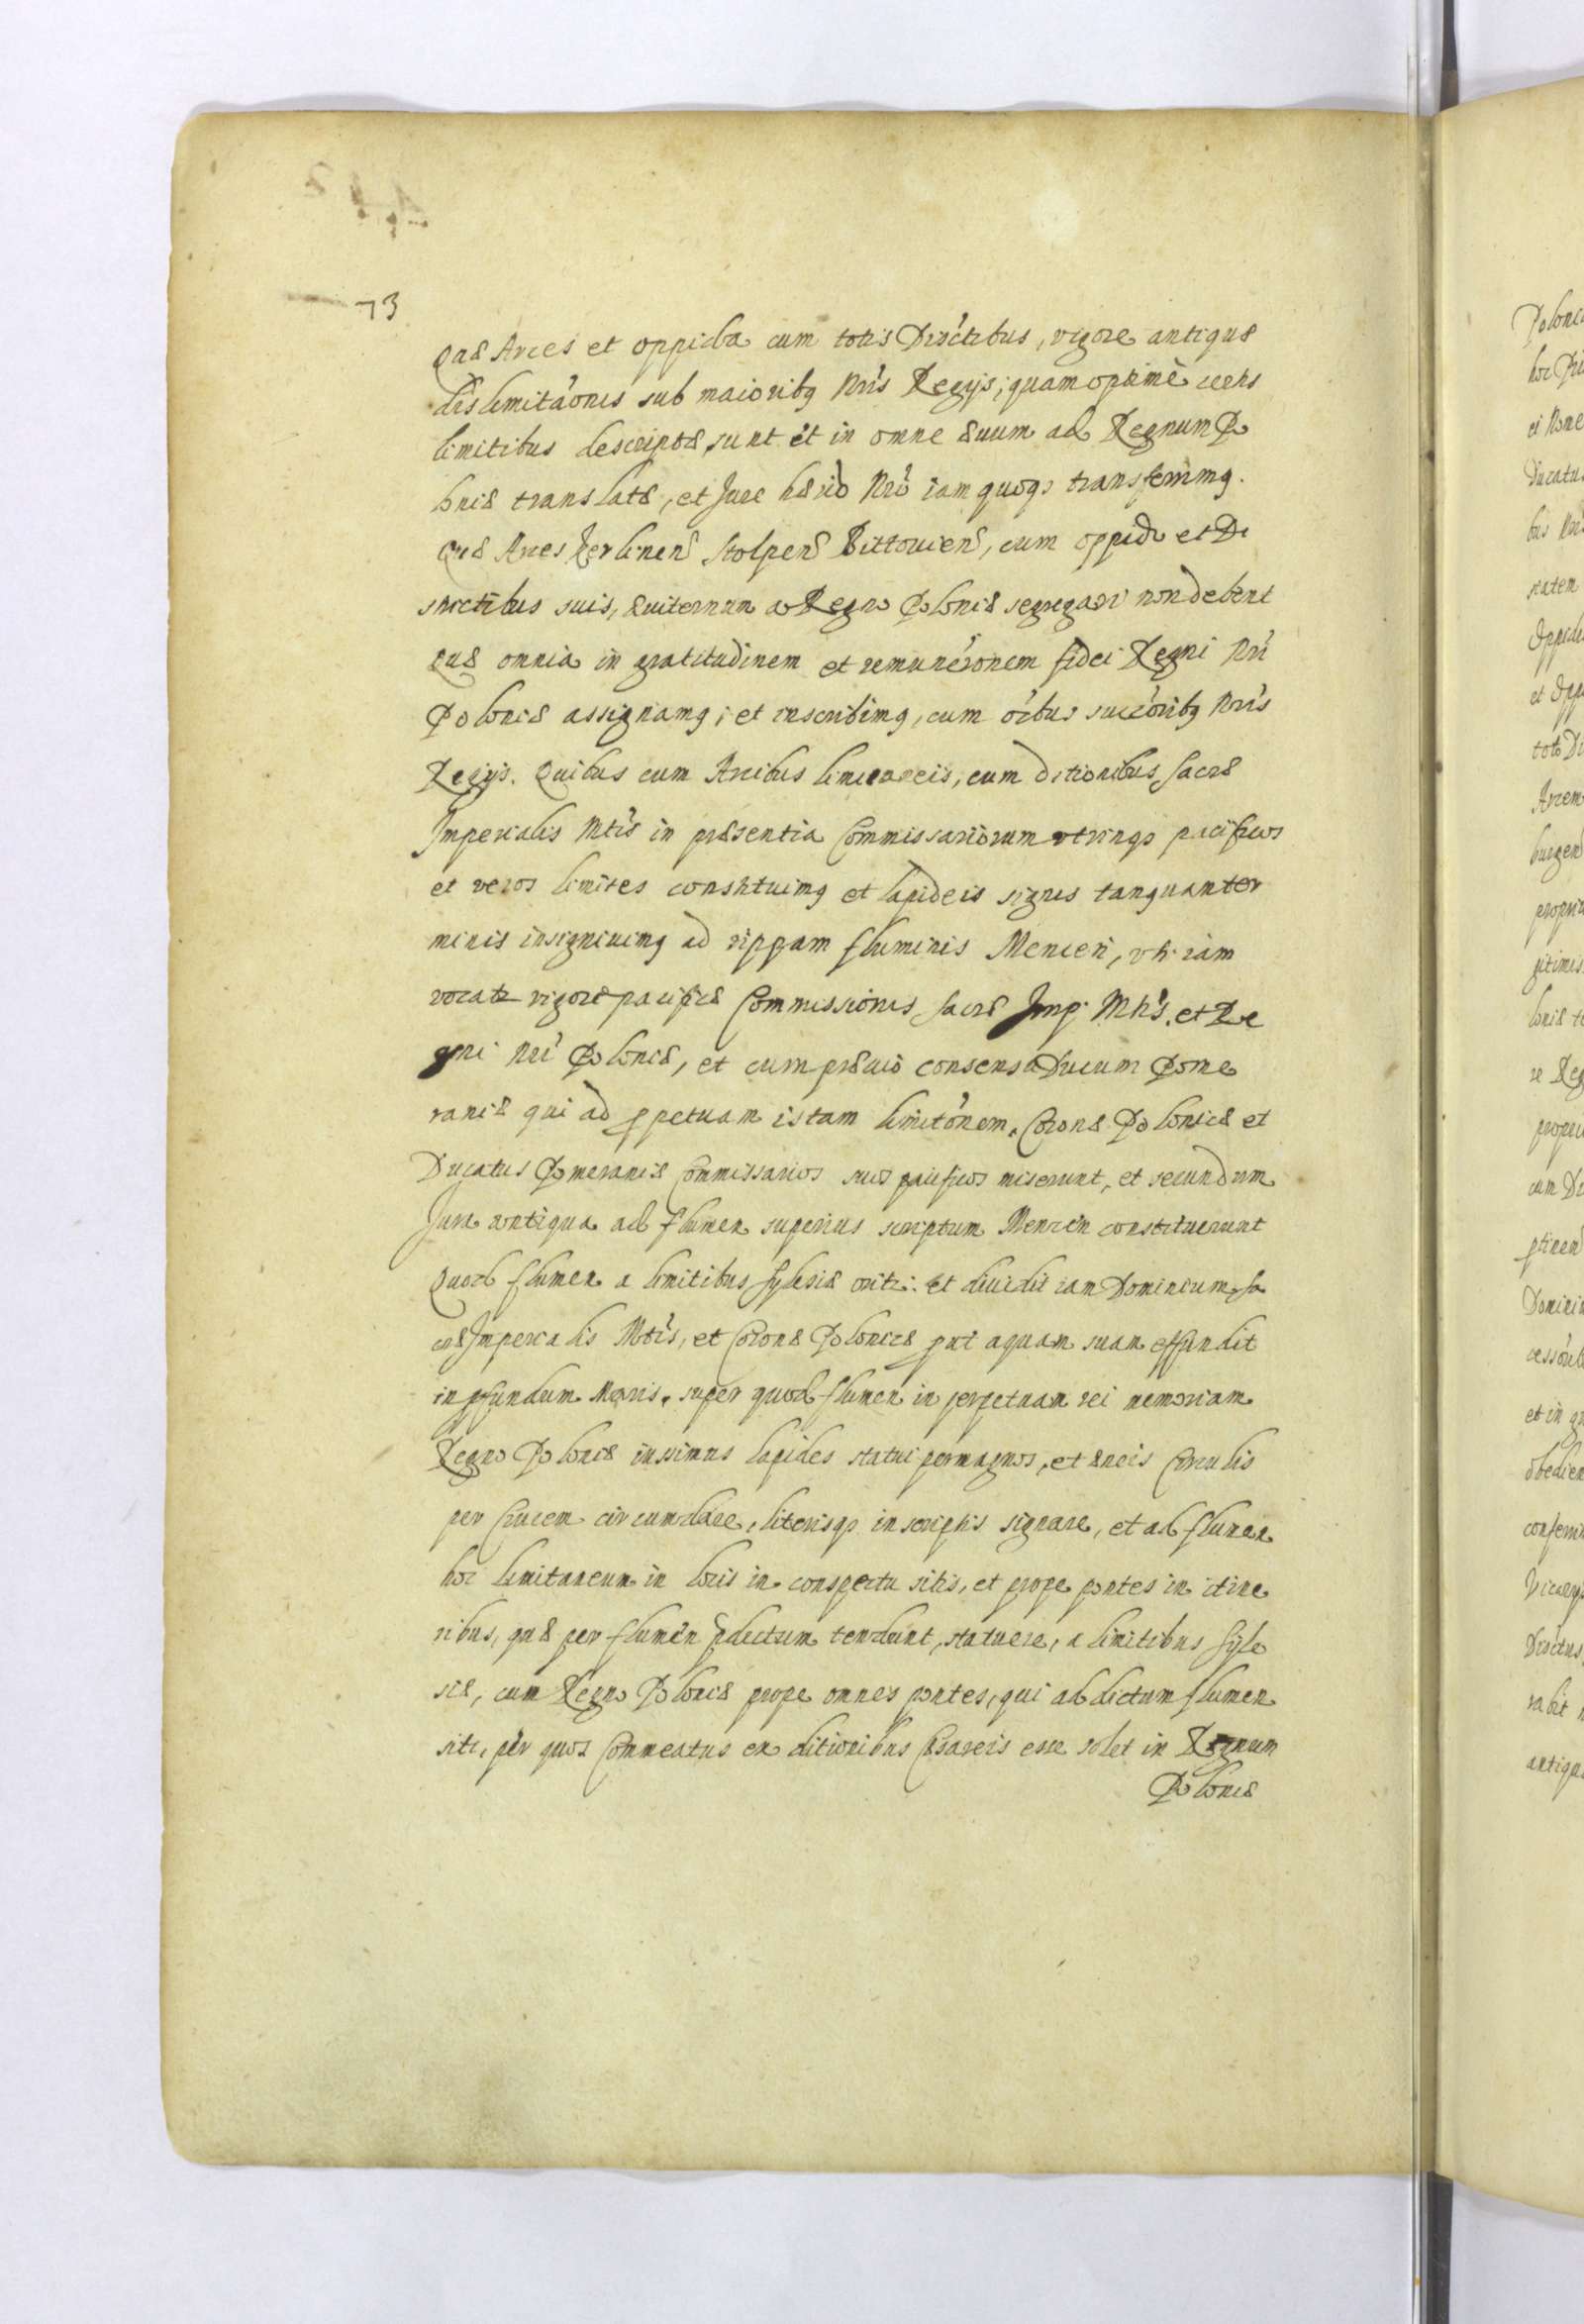 73
Quæ Arces et oppida cum totis Districtibus, vigore antiquæ
dislimitãonis sub maioribq Nris Regijs, quam optimè certis
limitibus descriptæ sunt et in omne æuum ad Regnum Po
loniæ translatæ, et Jure hæred Nro iam quoqз transferimq.
Quæ Arces Berlinens Stolpens Bittouiens, cum oppido et Di
strictibus suis, æuiternum a Regno Poloniæ segregari non debent
quæ omnia in gratitudinem et remunerõnem fidei Regni Nri
Poloniæ assignamq, et inscribimq, cum oibus succoribq Nris
Regijs. Quibus cum Arcibus limitaneis, cum ditionibus Sacræ
Imperialis Mtis in præsentia Commissariorum vtrinqз pacificos
et veros limites constituimq et lapideis signis tanquan ter
minis insigniuimq ad rippam fluminis Menceri, vti iam
vocatr vigore pacificæ Commissionis Sacræ Imp: Mtis, et Re
gni Nri Poloniæ, et cum præuio consensu Ducum Pome
raniæ qui ad ppetuam istam limitõnem, Coronæ Polonicæ et
Ducatus Pomeraniæ Commissarios suos pacificos miserunt, et secundum
Jura antiqua ad flumen superius scriptum Mencen constituerunt
Quod flumen a limitibus Sylesiæ oritr: et diuidit iam Dominium Sa
cræ Imperialis Mtis, et Coronæ Polonicæ put aquam suam effundit
in pfundum Maris, super quod flumen in perpetuam rei memoriam
Regno Poloniæ iussimus lapides statui permagnos, et æneis Circulis
per Crucem circumdare, literisqз inscriptis signare, et ad flumen
hoc limitaneum in locis in conspectu sitis, et prope pontes in itine
ribus, quæ per flumen pdictum tendunt, statuere, a limitibus Syle
siæ, cum Regno Poloniæ prope omnes pontes, qui ad dictum flumen
siti, per quos Commeatus ex ditionibus Cæsareis esse solet in Regnum
Poloniæ